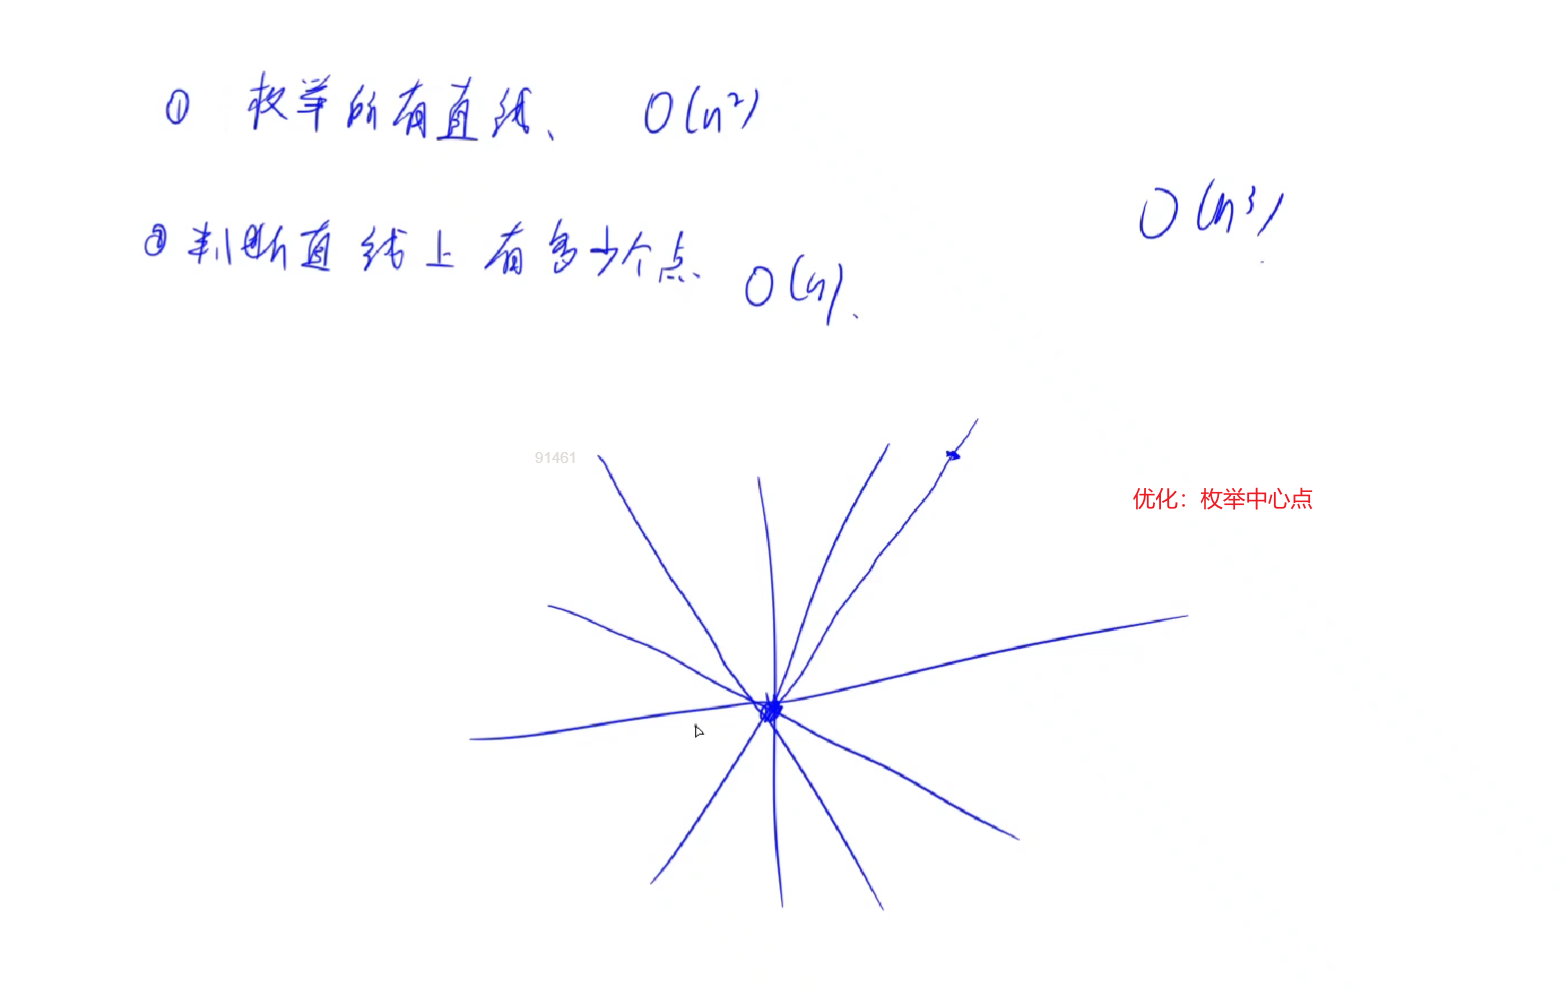 ① 枚举所有直线、 O(n²)
O(n³)
② 判断直线上有多少个点、 O(n)、
91461
优化：枚举中心点